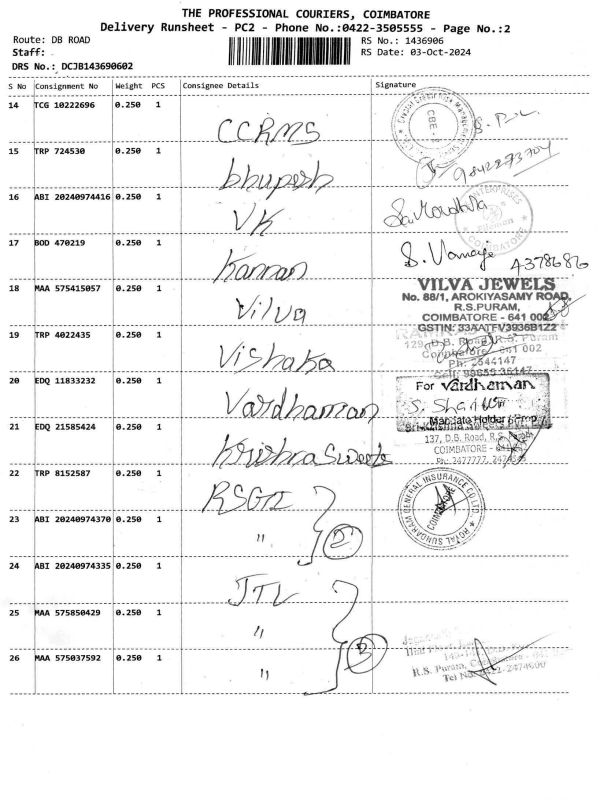 THE PROFESSIONAL COURIERS, COIMBATORE
Delivery Runsheet - PC2 - Phone No.:0422-3505555 - Page No.:2
Route: DB ROAD
RS No.: 1436906
Staff:
RS Date: 03-Oct-2024
DRS No.: DCJB143690602
S No Consignment No Weight PCS Consignee Details Signature
14 TCG 10222696 0.250 1 CCRMS
15 TRP 724530 0.250 1 bhupesh 9842273704
16 ABI 20240974416 0.250 1 VK
ENTERPRISES
COIMBATORE
17 BOD 470219 0.250 1 Kannan
18 MAA 575415057 0.250 1 Vilva
VILVA JEWELS
No. 88/1, AROKIYASAMY ROAD,
R.S.PURAM,
COIMBATORE - 641 002
GSTIN: 33AATFV3936B1Z2
19 TRP 4022435 0.250 1 Vishaka
129, D.B. Road, R.S. Puram
Coimbatore - 641 002
Ph: 2544147
20 EDQ 11833232 0.250 1 Vardhaman
For Vardhaman
Mandate Holder
21 EDQ 21585424 0.250 1 Krishna Sweets
137, D.B. Road, R.S.
COIMBATORE -
22 TRP 8152587 0.250 1 RSGI
ROYAL SUNDARAM GENERAL INSURANCE CO LTD.
COIMBATORE
23 ABI 20240974370 0.250 1 " 2
24 ABI 20240974335 0.250 1 JTL
25 MAA 575850429 0.250 1 "
26 MAA 575037592 0.250 1 " 3
R.S. Puram, Coimbatore
Tel No: 0422-2474600